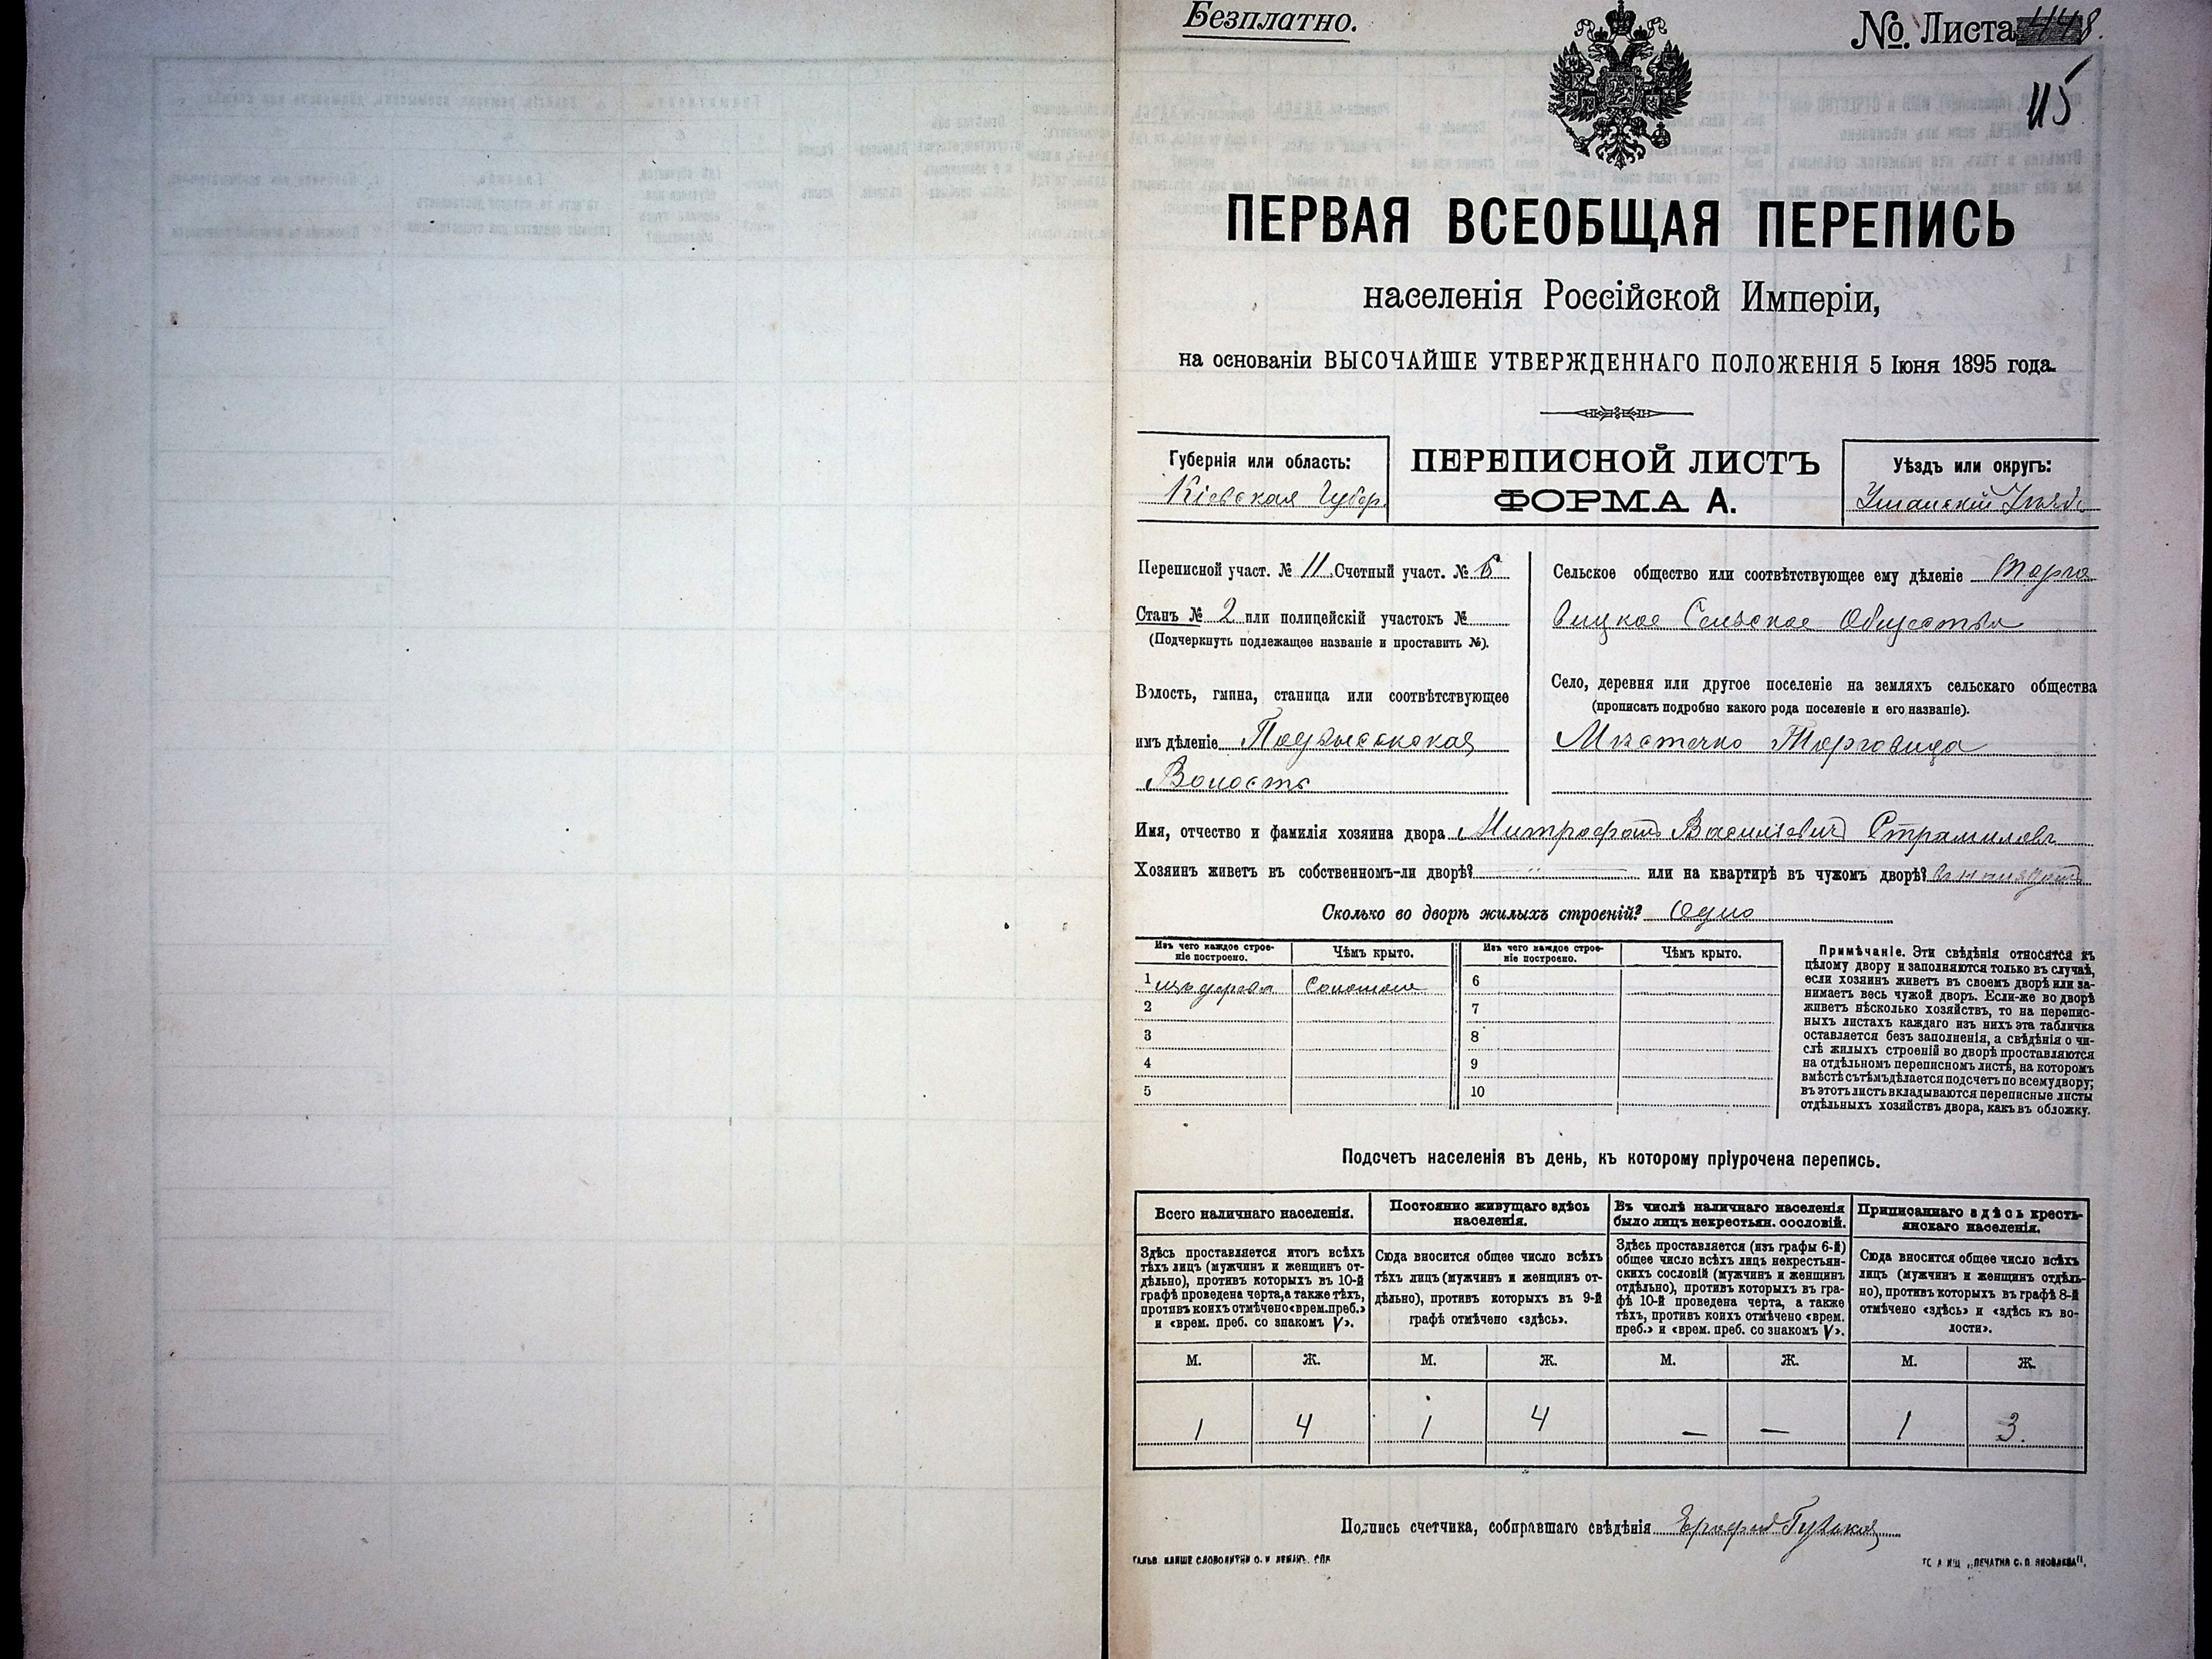 Безплатно.
№. Листа 448.
115
ПЕРВАЯ ВСЕОБЩАЯ ПЕРЕПИСЬ
населенія Россійской Имперіи,
на основаніи ВЫСОЧАЙШЕ УТВЕРЖДЕННАГО ПОЛОЖЕНІЯ 5 Іюня 1895 года.
Губернія или область:
Кіевская Губер.
ПЕРЕПИСНОЙ ЛИСТЪ
ФОРМА А.
Уѣздъ или округъ:
Уманскій Уѣздъ
Переписной участ. № 11. Счетный участ. № 6
Станъ № 2 или полицейскій участокъ №
(Подчеркнуть подлежащее названіе и проставить №).
Волость, гмина, станица или соотвѣтствующее
имъ дѣленіе Подвысокская
Волость
Сельское общество или соотвѣтствующее ему дѣленіе Торго
вицкое Сельское Общество
Село, деревня или другое поселеніе на земляхъ сельскаго общества
(прописать подробно какого рода поселеніе и его названіе).
Мѣстечко Торговица
Имя, отчество и фамилія хозяина двора Митрофанъ Василіевич
Хозяинъ живетъ въ собственномъ-ли дворѣ? или на квартирѣ въ чужомъ дворѣ?
Сколько во дворѣ жилыхъ строеній? Одно
Изъ чего каждое строе-
ніе построено.
Чѣмъ крыто.
Изъ чего каждое строе-
ніе построено.
Чѣмъ крыто.
1 изъ дерева Соломою 6
2 7
3 8
4 9
5 10
Примѣчаніе. Эти свѣдѣнія относятся къ
цѣлому двору и заполняются только въ случаѣ,
если хозяинъ живетъ въ своемъ дворѣ или за-
нимаетъ весь чужой дворъ. Если-же во дворѣ
живетъ нѣсколько хозяйствъ, то на перепис-
ныхъ листахъ каждаго изъ нихъ эта табличка
оставляется безъ заполненія, а свѣдѣнія о чи-
слѣ жилыхъ строеній во дворѣ проставляются
на отдѣльномъ переписномъ листѣ, на которомъ
вмѣстѣ съ тѣмъ дѣлается подсчетъ по всему двору;
въ этотъ листъ вкладываются переписные листы
отдѣльныхъ хозяйствъ двора, какъ въ обложку.
Подсчетъ населенія въ день, къ которому пріурочена перепись.
Всего наличнаго населенія.
Здѣсь проставляется итогъ всѣхъ
тѣхъ лицъ (мужчинъ и женщинъ от-
дѣльно), противъ которыхъ въ 10-й
графѣ проведена черта, а также тѣхъ,
противъ коихъ отмѣчено «врем. преб.»
и «врем. преб. со знакомъ V».
Постоянно живущаго здѣсь
населенія.
Сюда вносится общее число всѣхъ
тѣхъ лицъ (мужчинъ и женщинъ от-
дѣльно), противъ которыхъ въ 9-й
графѣ отмѣчено «здѣсь».
Въ числѣ наличнаго населенія
было лицъ некрестьян. сословій.
Здѣсь проставляется (изъ графы 6-й)
общее число всѣхъ лицъ некрестьян-
скихъ сословій (мужчинъ и женщинъ
отдѣльно), противъ которыхъ въ гра-
фѣ 10-й проведена черта, а также
тѣхъ, противъ коихъ отмѣчено «врем.
преб.» и «врем. преб. со знакомъ V».
Приписаннаго здѣсь кресть-
янскаго населенія.
Сюда вносится общее число всѣхъ
лицъ (мужчинъ и женщинъ отдѣль-
но), противъ которыхъ въ графѣ 8-й
отмѣчено «здѣсь» и «здѣсь къ во-
лости».
М. Ж. М. Ж. М. Ж. М. Ж.
1 4 1 4 — — 1 3.
Подпись счетчика, собиравшаго свѣдѣнія